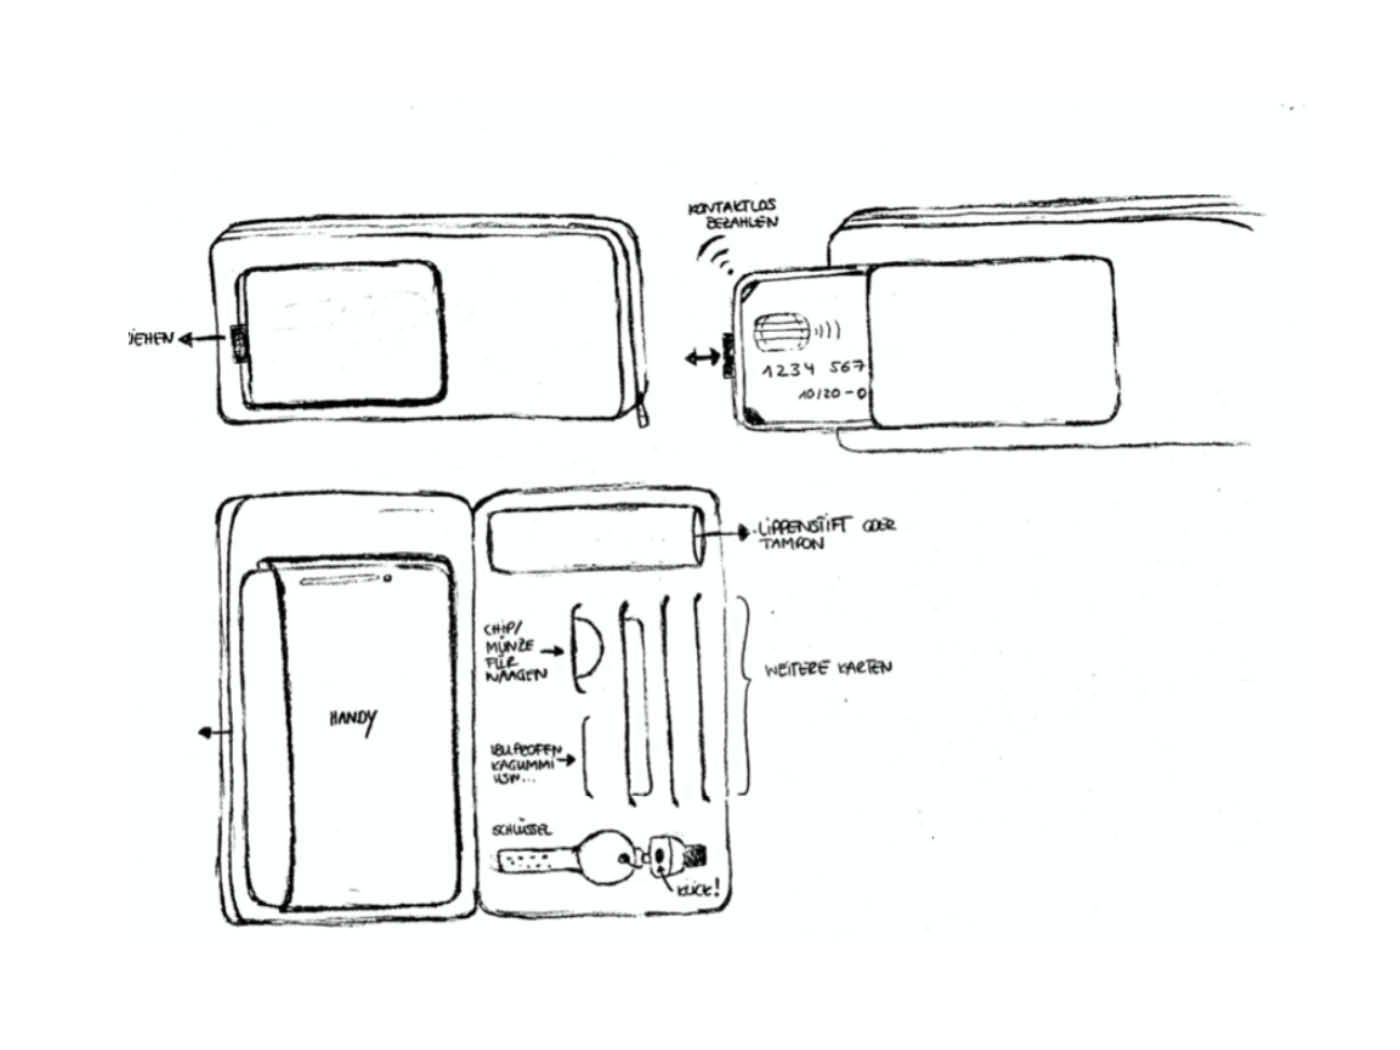 KONTAKTLOS
BEZAHLEN
IEHEN
1234 567
10/20-0
LIPPENSTIFT ODER
TAMPON
CHIP/
MÜNZE
FÜR
WAAGEN
WEITERE KARTEN
HANDY
IBUPROFEN
KAGUMMI
USW...
SCHLÜSSEL
KLICK!